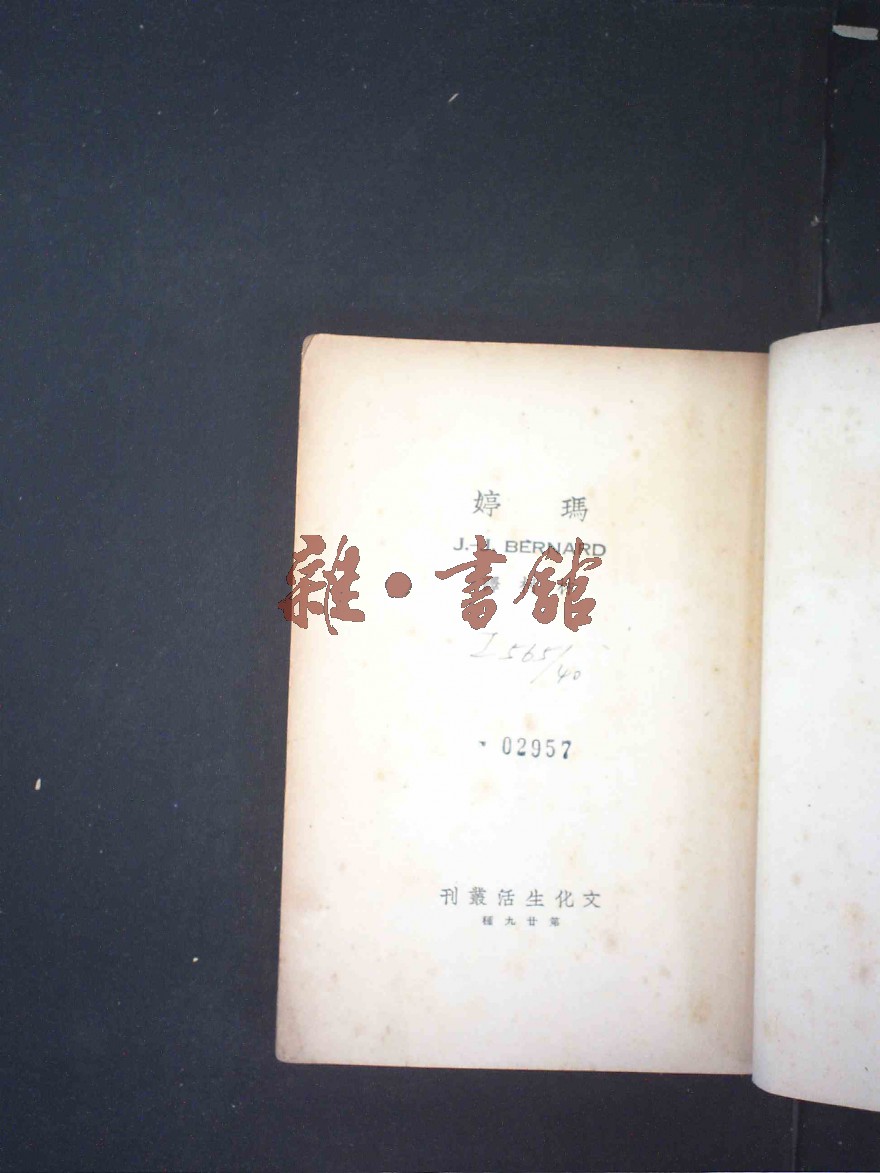 瑪婷
J.-J. BERNARD
雜·書館
I 565/40
02957
文化生活叢刊
第廿九種